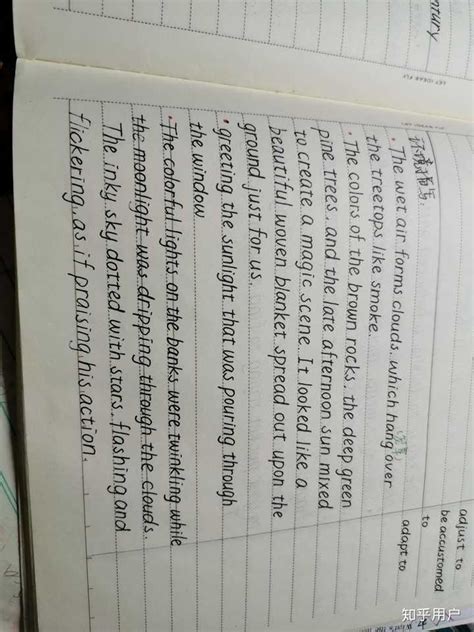 环境描写:
· The wet air forms clouds, which hang over
the treetops like smoke.
· The colors of the brown rocks, the deep green
pine trees, and the late afternoon sun mixed
to create a magic scene. It looked like a
beautiful woven blanket spread out upon the
ground just for us.
· greeting the sunlight that was pouring through
the window
· The colorful lights on the banks were twinkling while
the moonlight was dripping through the clouds.
The inky sky dotted with stars, flashing and
flickering, as if praising his action.
adjust to
be accustomed
to
adapt to
知乎用户